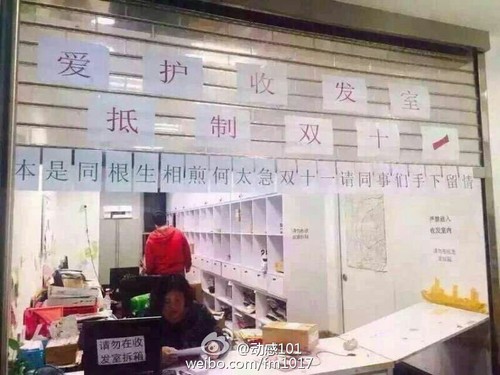 爱护收发室
抵制双十一
本是同根生相煎何太急双十一请同事们手下留情
严禁他人
收发室内
请勿在收
发室拆箱
动感101
weibo.com/fm1017